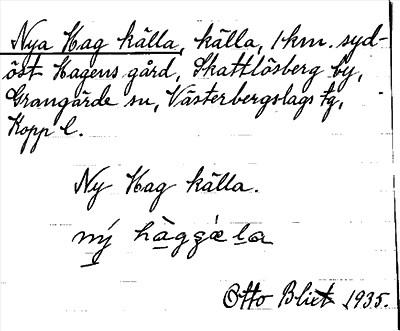 Nya Hag källa, källa, 1 km. syd-
öst Hagens gård, Skattlösberg by,
Grangärde sn, Västerbergslags tg,
Kopp l.
Ny Hag källa.
Otto Blixt 1935.